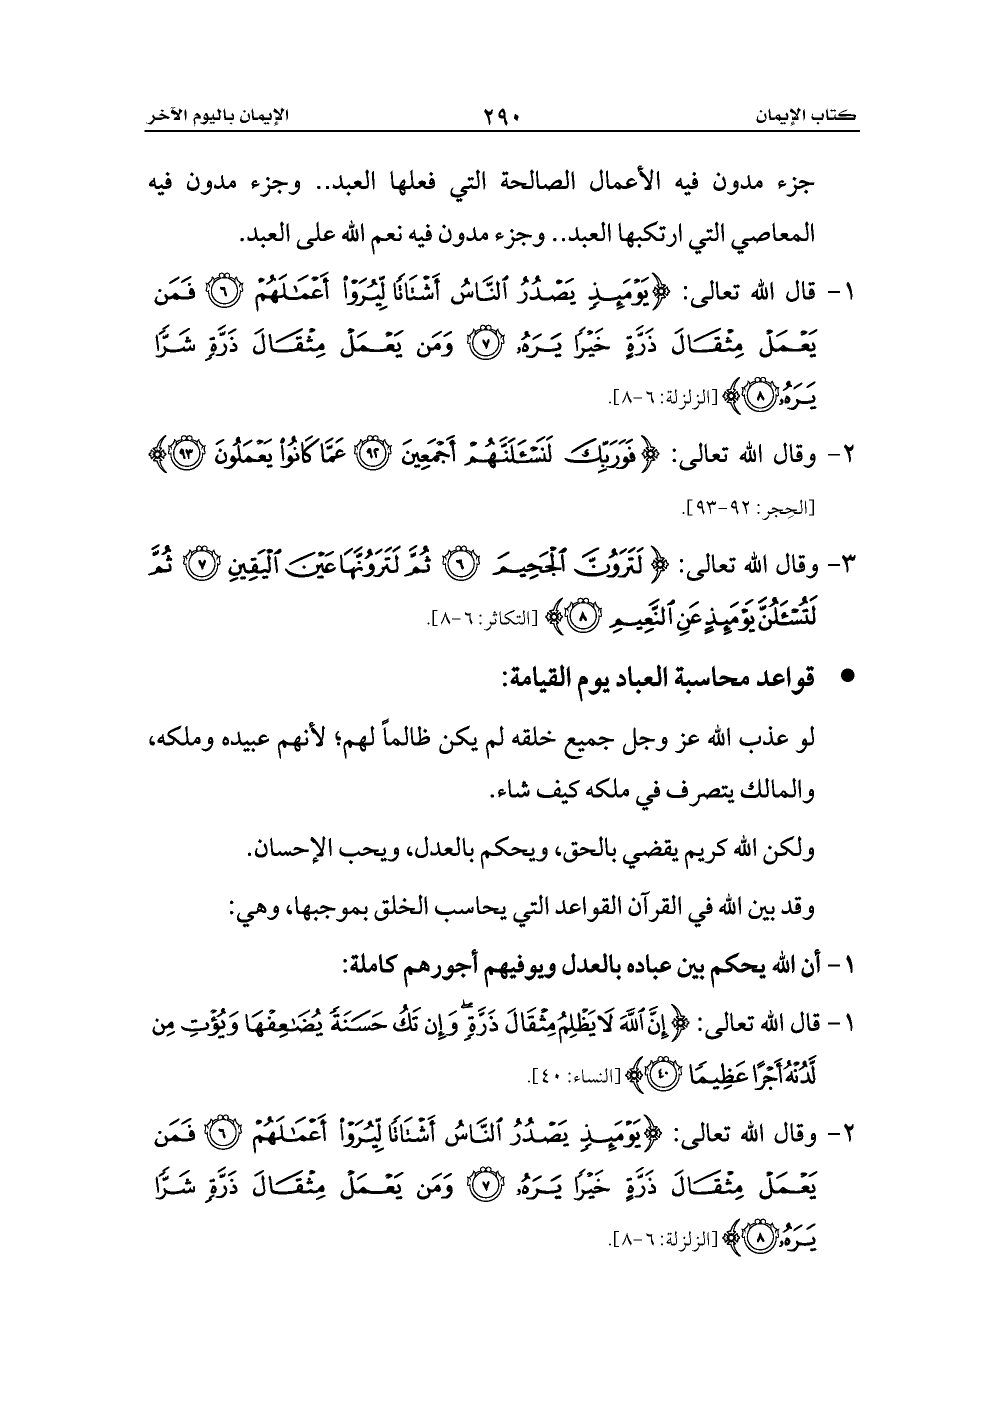 كتاب الإيمان ٢٩٠ الإيمان باليوم الآخر
جزء مدون فيه الأعمال الصالحة التي فعلها العبد.. وجزء مدون فيه
المعاصي التي ارتكبها العبد.. وجزء مدون فيه نعم الله على العبد.
١- قال الله تعالى: ﴿يَوْمَئِذٍ يَصْدُرُ ٱلنَّاسُ أَشْتَاتًا لِّيُرَوْا۟ أَعْمَـٰلَهُمْ ۝٦ فَمَن
يَعْمَلْ مِثْقَالَ ذَرَّةٍ خَيْرًا يَرَهُۥ ۝٧ وَمَن يَعْمَلْ مِثْقَالَ ذَرَّةٍ شَرًّا
يَرَهُۥ ۝٨﴾ [الزلزلة: ٦-٨].
٢- وقال الله تعالى: ﴿فَوَرَبِّكَ لَنَسْـَٔلَنَّهُمْ أَجْمَعِينَ ۝٩٢ عَمَّا كَانُوا۟ يَعْمَلُونَ ۝٩٣﴾
[الحِجر: ٩٢-٩٣].
٣- وقال الله تعالى: ﴿لَتَرَوُنَّ ٱلْجَحِيمَ ۝٦ ثُمَّ لَتَرَوُنَّهَا عَيْنَ ٱلْيَقِينِ ۝٧ ثُمَّ
لَتُسْـَٔلُنَّ يَوْمَئِذٍ عَنِ ٱلنَّعِيمِ ۝٨﴾ [التكاثر: ٦-٨].
● قواعد محاسبة العباد يوم القيامة:
لو عذب الله عز وجل جميع خلقه لم يكن ظالماً لهم؛ لأنهم عبيده وملكه،
والمالك يتصرف في ملكه كيف شاء.
ولكن الله كريم يقضي بالحق، ويحكم بالعدل، ويحب الإحسان.
وقد بين الله في القرآن القواعد التي يحاسب الخلق بموجبها، وهي:
١- أن الله يحكم بين عباده بالعدل ويوفيهم أجورهم كاملة:
١- قال الله تعالى: ﴿إِنَّ ٱللَّهَ لَا يَظْلِمُ مِثْقَالَ ذَرَّةٍ ۖ وَإِن تَكُ حَسَنَةً يُضَـٰعِفْهَا وَيُؤْتِ مِن
لَّدُنْهُ أَجْرًا عَظِيمًا ۝٤٠﴾ [النساء: ٤٠].
٢- وقال الله تعالى: ﴿يَوْمَئِذٍ يَصْدُرُ ٱلنَّاسُ أَشْتَاتًا لِّيُرَوْا۟ أَعْمَـٰلَهُمْ ۝٦ فَمَن
يَعْمَلْ مِثْقَالَ ذَرَّةٍ خَيْرًا يَرَهُۥ ۝٧ وَمَن يَعْمَلْ مِثْقَالَ ذَرَّةٍ شَرًّا
يَرَهُۥ ۝٨﴾ [الزلزلة: ٦-٨].